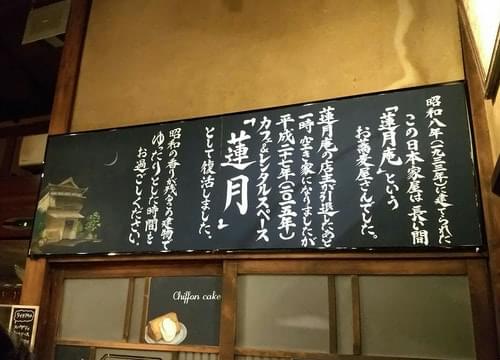 昭和八年(一九三三年)に建てられた
この日本家屋は、長い間
「蓮月庵」という
お蕎麦屋さんでした。
蓮月庵の店主が引退したのと
一時、空き家になりましたが
平成二十七年(二〇一五年)
カフェ&レンタルスペース
「蓮月」
として復活しました。
昭和の香り残るこの建物で
ゆったりとした時間を
お過ごしください。
Chiffon cake